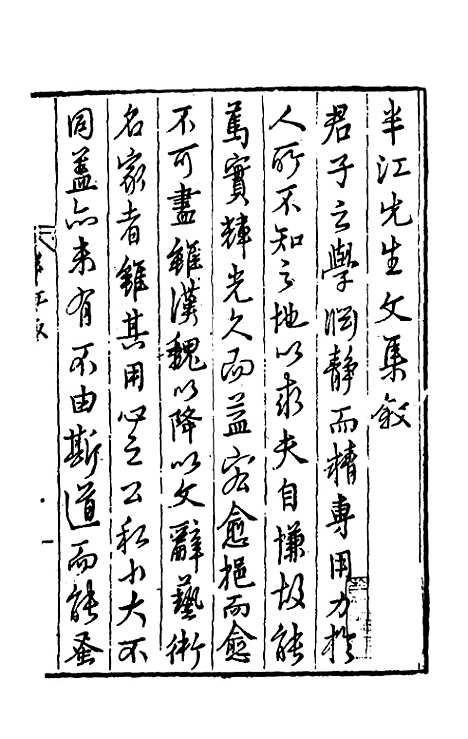 半江先生文集敘
君子之學㴠靜而精專用力於
人所不知之地以求夫自慊故能
篤實輝光久而益宏愈挹而愈
不可盡雖漢魏以降以文辭藝術
名家者雖其用心之公私小大不
同蓋亦未有不由斯道而能蚤